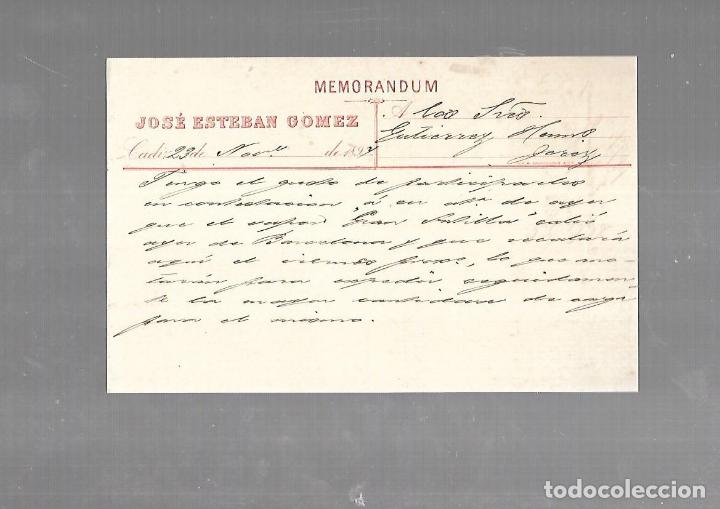 MEMORANDUM
JOSÉ ESTEBAN GOMEZ
Cadiz 23 de Nov.. de 189
A los Sres
Gutierrez Hermos
Jerez
Tengo el gusto de participarles
en contestacion á su atta de ayer
que el vapor "Gran Antilla" salió
ayer de Barcelona y que recalará
aquí el viernes proxo, lo que no-
tarán para expedir seguidamen-
te la mayor cantidad de carga
para el mismo.
todocoleccion.net